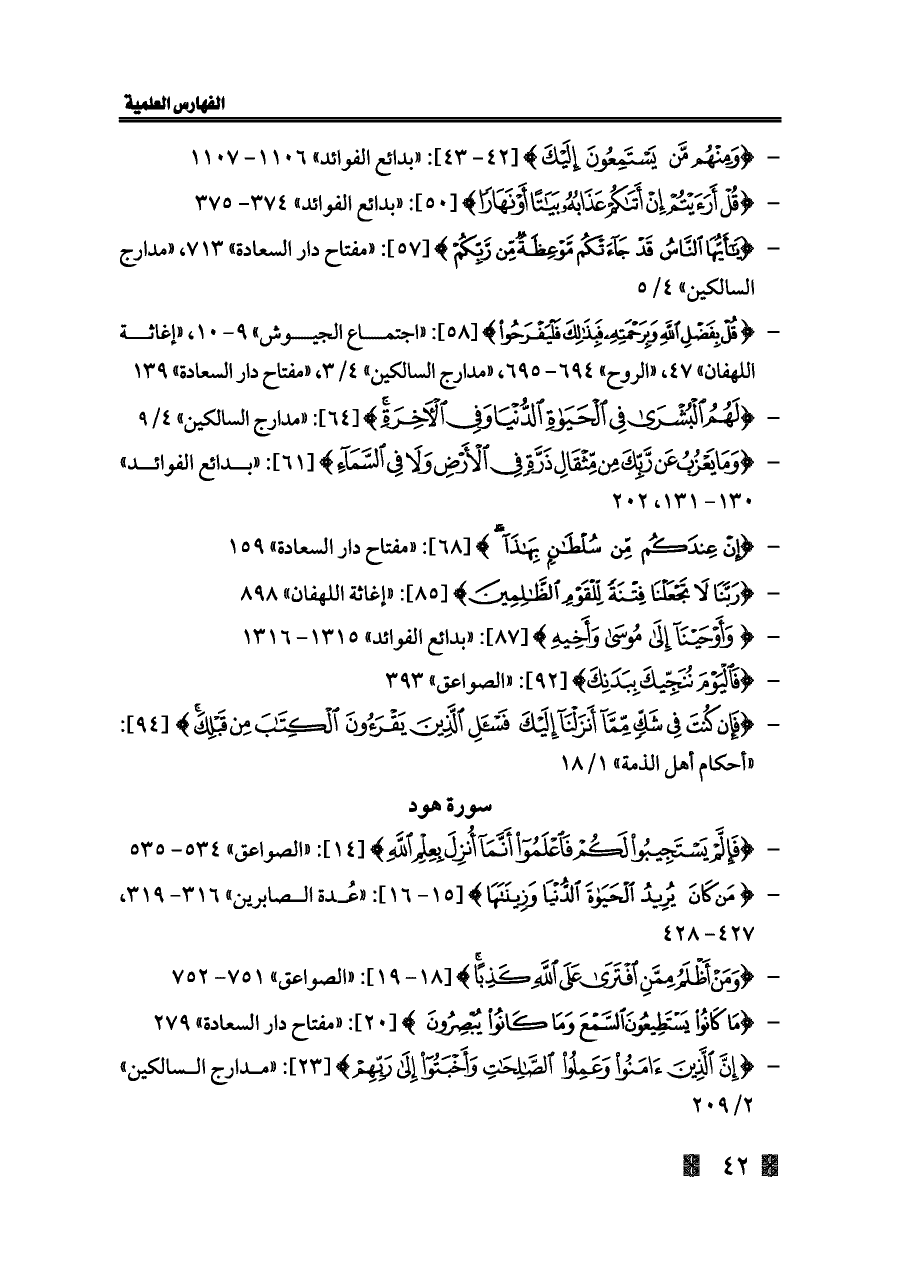 الفهارس العلمية
- ﴿وَمِنْهُم مَّن يَسْتَمِعُونَ إِلَيْكَ﴾ [٤٢- ٤٣]: «بدائع الفوائد» ١١٠٦- ١١٠٧
- ﴿قُلْ أَرَءَيْتُمْ إِنْ أَتَىٰكُمْ عَذَابُهُۥ بَيَٰتًا أَوْ نَهَارًا﴾ [٥٠]: «بدائع الفوائد» ٣٧٤- ٣٧٥
- ﴿يَٰٓأَيُّهَا ٱلنَّاسُ قَدْ جَآءَتْكُم مَّوْعِظَةٌ مِّن رَّبِّكُمْ﴾ [٥٧]: «مفتاح دار السعادة» ٧١٣، «مدارج
السالكين» ٤/ ٥
- ﴿قُلْ بِفَضْلِ ٱللَّهِ وَبِرَحْمَتِهِۦ فَبِذَٰلِكَ فَلْيَفْرَحُوا۟﴾ [٥٨]: «اجتمـــاع الجيـــوش» ٩- ١٠، «إغاثـــة
اللهفان» ٤٧، «الروح» ٦٩٤- ٦٩٥، «مدارج السالكين» ٤/ ٣، «مفتاح دار السعادة» ١٣٩
- ﴿لَهُمُ ٱلْبُشْرَىٰ فِى ٱلْحَيَوٰةِ ٱلدُّنْيَا وَفِى ٱلْءَاخِرَةِۚ﴾ [٦٤]: «مدارج السالكين» ٤/ ٩
- ﴿وَمَا يَعْزُبُ عَن رَّبِّكَ مِن مِّثْقَالِ ذَرَّةٍ فِى ٱلْأَرْضِ وَلَا فِى ٱلسَّمَآءِ﴾ [٦١]: «بـــدائع الفوائـــد»
١٣٠- ١٣١، ٢٠٢
- ﴿إِنْ عِندَكُم مِّن سُلْطَٰنٍۭ بِهَٰذَآۚ﴾ [٦٨]: «مفتاح دار السعادة» ١٥٩
- ﴿رَبَّنَا لَا تَجْعَلْنَا فِتْنَةً لِّلْقَوْمِ ٱلظَّٰلِمِينَ﴾ [٨٥]: «إغاثة اللهفان» ٨٩٨
- ﴿وَأَوْحَيْنَآ إِلَىٰ مُوسَىٰ وَأَخِيهِ﴾ [٨٧]: «بدائع الفوائد» ١٣١٥- ١٣١٦
- ﴿فَٱلْيَوْمَ نُنَجِّيكَ بِبَدَنِكَ﴾ [٩٢]: «الصواعق» ٣٩٣
- ﴿فَإِن كُنتَ فِى شَكٍّ مِّمَّآ أَنزَلْنَآ إِلَيْكَ فَسْـَٔلِ ٱلَّذِينَ يَقْرَءُونَ ٱلْكِتَٰبَ مِن قَبْلِكَۚ﴾ [٩٤]:
«أحكام أهل الذمة» ١/ ١٨
سورة هود
- ﴿فَإِلَّمْ يَسْتَجِيبُوا۟ لَكُمْ فَٱعْلَمُوٓا۟ أَنَّمَآ أُنزِلَ بِعِلْمِ ٱللَّهِ﴾ [١٤]: «الصواعق» ٥٣٤- ٥٣٥
- ﴿مَن كَانَ يُرِيدُ ٱلْحَيَوٰةَ ٱلدُّنْيَا وَزِينَتَهَا﴾ [١٥- ١٦]: «عُـدة الـصابرين» ٣١٦- ٣١٩،
٤٢٧- ٤٢٨
- ﴿وَمَنْ أَظْلَمُ مِمَّنِ ٱفْتَرَىٰ عَلَى ٱللَّهِ كَذِبًاۚ﴾ [١٨- ١٩]: «الصواعق» ٧٥١- ٧٥٢
- ﴿مَا كَانُوا۟ يَسْتَطِيعُونَ ٱلسَّمْعَ وَمَا كَانُوا۟ يُبْصِرُونَ﴾ [٢٠]: «مفتاح دار السعادة» ٢٧٩
- ﴿إِنَّ ٱلَّذِينَ ءَامَنُوا۟ وَعَمِلُوا۟ ٱلصَّٰلِحَٰتِ وَأَخْبَتُوٓا۟ إِلَىٰ رَبِّهِمْ﴾ [٢٣]: «مـدارج الـسالكين»
٢/ ٢٠٩
٤٢